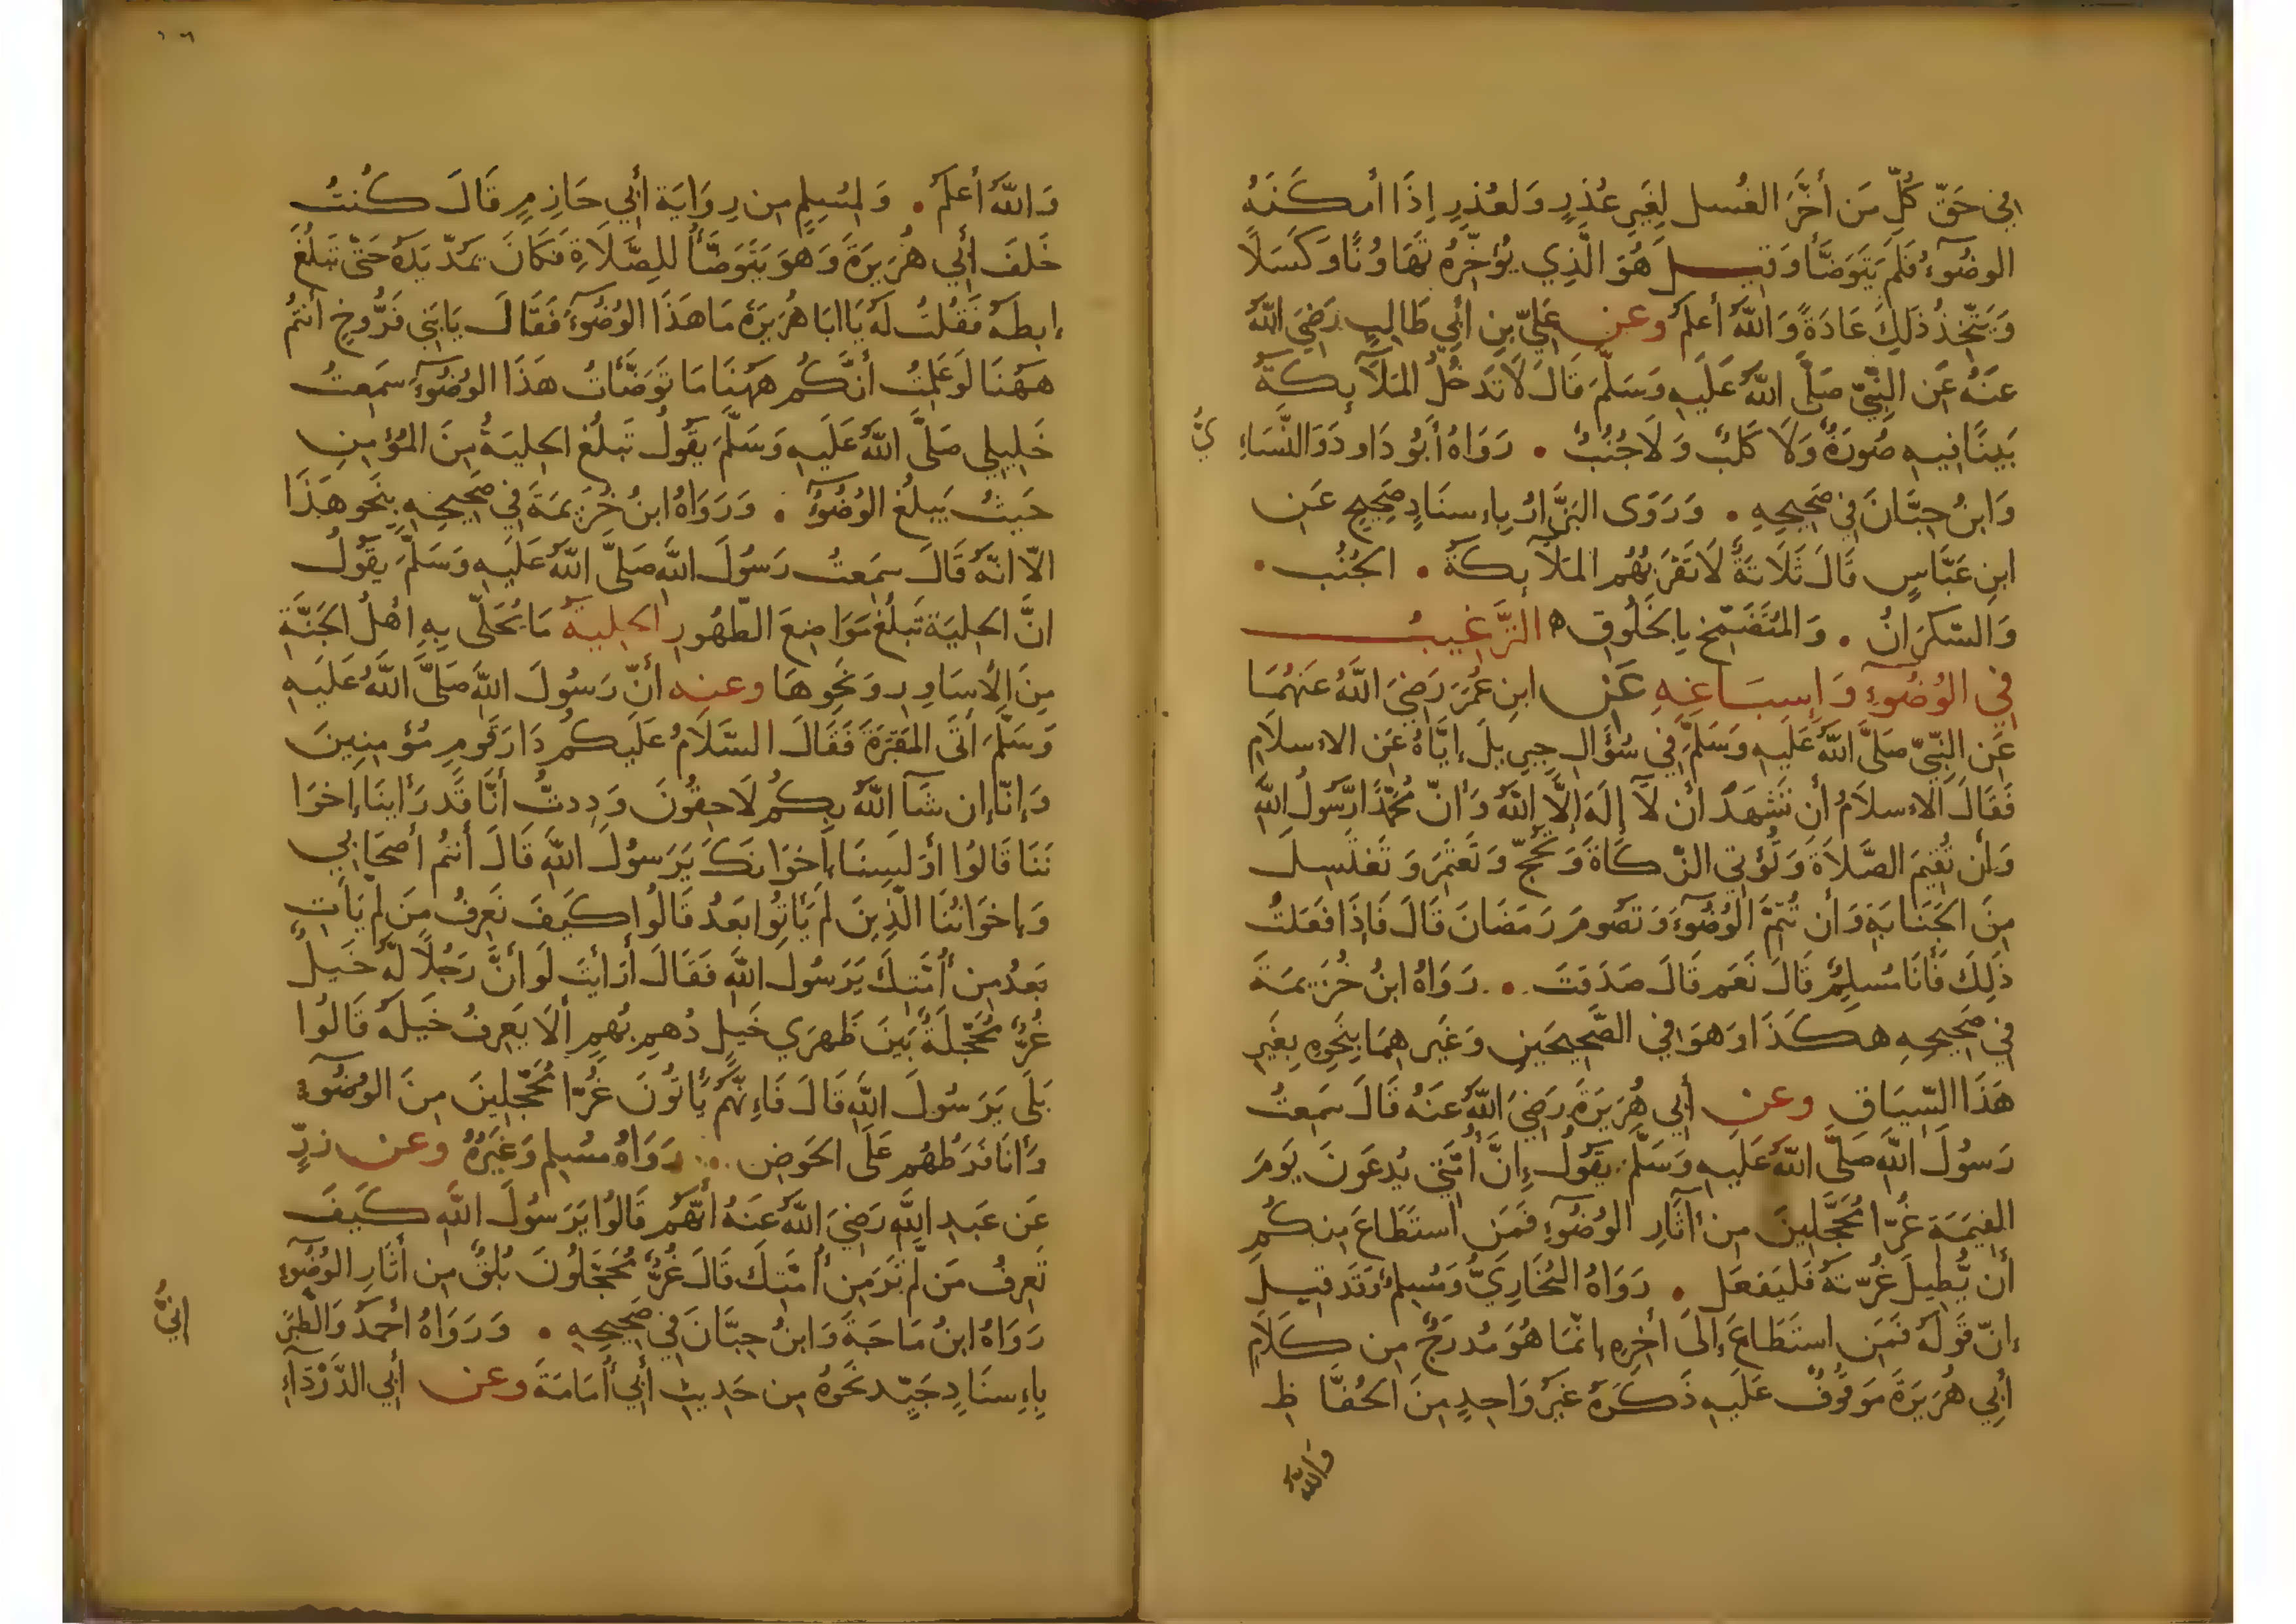 في حَقّ كُلِّ مَن أَخَّرَ الغُسل لِغَيرِ عُذرٍ وَلعُذرٍ اِذَا أمكَنَهُ
الوضُوءُ فَلَم يَتَوَضَّأ وَقيل هُوَ الَّذِي يُؤخِّرُهُ تَهَاوُنًا وَكَسَلًا
وَيَتَّخِذُ ذَلِكَ عَادَةً وَاللَّهُ أعلَمُ وعن عَلِيّ بنِ أَبِي طَالِبٍ رَضِيَ اللَّهُ
عَنهُ عَن النَّبِيّ صَلَّى اللَّهُ عَلَيهِ وَسَلَّمَ قَالَ لَا تَدخُلُ المَلَآئِكَةُ
بَيتًا فِيهِ صُورَةٌ وَلَا كَلبٌ وَلَا جُنُبٌ . رَوَاهُ أَبُو دَاودَ وَالنَّسَاءِ
يُّ
وَابنُ حِبَّانَ فِي صَحِيحِهِ . وَرَوَى البَزَّارُ بِاءِسنَادٍ صَحِيحٍ عَن
ابنِ عَبَّاسٍ قَالَ ثَلَاثَةٌ لَا تَقرَبُهُم المَلَآئِكَةُ . الجُنُب .
وَالسّكرَانُ . وَالمُتَضَمِّخ بِالخَلُوقِ ه التَّرغِيبُ
فِي الوُضُوءِ وَاِسبَاغِهِ عَن ابنِ عُمَرَ رَضِيَ اللَّهُ عَنهُمَا
عَن النَّبِيّ صَلَّى اللَّهُ عَلَيهِ وَسَلَّمَ فِي سُؤَالِ جِبرِيلَ إيَّاهُ عَن الاءسلَامِ
فَقَالَ الاءسلَامُ أن تَشهَدَ أن لَآ إلَهَ إلَّا اللَّهُ وَأنّ مُحَمَّدًا رَّسُولُ اللَّهِ
وَأن تُقِيمَ الصَّلَاةَ وَتُؤتِي الزّكَاةَ وَتَحُجّ وَتَعتَمِرَ وَتَغتَسِلَ
مِنَ الجَنَابَةِ وَأن تُتِمَّ الوُضُوءَ وَتَصُومَ رَمَضَانَ قَالَ فَاِذَا فَعَلتُ
ذَلِكَ فَأَنَا مُسلِمٌ قَالَ نَعَم قَالَ صَدَقتَ . رَوَاهُ ابنُ خُزَيمَةَ
فِي صَحِيحِهِ هكَذَا وَهوَ فِي الصَّحِيحَينِ وَغَيرِهِمَا بِنَحوِهِ بِغَيرِ
هَذَا السِّيَاقِ وعن أبِي هُرَيرَةَ رَضِيَ اللَّهُ عَنهُ قَالَ سَمِعتُ
رَسُولَ اللَّهِ صَلَّى اللَّهُ عَلَيهِ وَسَلَّمَ يَقُولُ إِنَّ أُمَّتِي يُدعَونَ يَومَ
القِيَمَةِ غُرًّا مُحَجَّلِينَ مِن أثَارِ الوُضُوءِ فَمَن استَطَاعَ مِنكُم
أن يُّطِيلَ غُرّتَهُ فَليَفعَل . رَوَاهُ البُخَارِيُّ وَمُسلِمٌ وَقَد قِيلَ
إنّ قَولَهُ فَمَنِ استَطَاعَ إلَى أخِرِهِ إنَّمَا هُوَ مُدرَجٌ مِن كَلَامِ
أبِي هُرَيرَةَ مَوقُوفٌ عَلَيهِ ذَكَرَهُ غَيرُ وَاحِدٍ مِنَ الحُفَّاظِ
وَاللَّهُ
١٦
وَاللَّهُ أعلَمُ . وَلِمُسلِمٍ مِن رِوَايَةِ أبِي حَازِمٍ قَالَ كُنتُ
خَلفَ أبِي هُرَيرَةَ وَهوَ يَتَوَضَّأُ لِلصَّلَاةِ فَكَانَ يَمُدّ يَدَهُ حَتَّى تَبلُغَ
إبطَهُ فَقُلتُ لَهُ يَا ابَا هُرَيرَةَ مَا هَذَا الوُضُوءُ فَقَالَ يَا بَنِي فَرُّوخٍ أنتُم
هَهُنَا لَو عَلِمتُ أنَّكُم هَهُنَا مَا تَوَضَّأتُ هَذَا الوُضُوءَ سَمِعتُ
خَلِيلِي صَلَّى اللَّهُ عَلَيهِ وَسَلَّمَ يَقُولُ تَبلُغ الحِليَةُ مِنَ المُؤمِنِ
حَيثُ يَبلُغ الوُضُوءُ . وَرَوَاهُ ابنُ خُزَيمَةَ فِي صَحِيحِهِ بِنَحوِ هَذَا
الّا انّهُ قَالَ سَمِعتُ رَسُولَ اللَّهِ صَلَّى اللَّهُ عَلَيهِ وَسَلَّمَ يَقُولُ
انَّ الحِليَةَ تَبلُغ مَوَاضِعَ الطّهُورِ الحِليَةُ مَا يُحَلَّى بِهِ أهلُ الجَنَّةِ
مِنَ الأسَاوِرِ وَنَحوِهَا وعنه أنّ رَسُولَ اللَّهِ صَلَّى اللَّهُ عَلَيهِ
وَسَلَّمَ أتَى المَقبَرَةَ فَقَالَ السَّلَامُ عَلَيكُم دَارَ قَومٍ مُؤمِنِينَ
وَإنّا إن شَآ اللَّهُ بِكُم لَاحِقُونَ وَدِدتُّ أنَّا قَد رَأينَا إخوَا
نَنَا قَالُوا أوَلَيسنَا إخوَانَكَ يَرَسُولَ اللَّهِ قَالَ أنتُم أصحَابِي
وَإخوَانُنَا الَّذِينَ لَم يَأتُوا بَعدُ قَالُوا كَيفَ تَعرِفُ مَن لَّم يَأتِ
بَعدُ مِن أُمَّتِكَ يَرَسُولَ اللَّهِ فَقَالَ أرَأيتَ لَو أنَّ رَجُلًا لَّهُ خَيلٌ
غُرٌّ مُحَجَّلَةٌ بَينَ ظَهرَي خَيلٍ دُهمٍ بُهمٍ ألَا يَعرِفُ خَيلَهُ قَالُوا
بَلَى يَرَسُولَ اللَّهِ قَالَ فَاءِنَّهُم يَأتُونَ غُرًّا مُحَجَّلِينَ مِنَ الوُضُوءِ
وَأنَا فَرَطُهُم عَلَى الحَوضِ . رَوَاهُ مُسلِم وَغَيرُهُ وعن زِرٍّ
عَن عَبدِ اللَّهِ رَضِيَ اللَّهُ عَنهُ أنّهُم قَالُوا يَرَسُولَ اللَّهِ كَيفَ
تَعرِفُ مَن لَّم تَرَ مِن أُمَّتِكَ قَالَ غُرٌّ مُحَجَّلُونَ بُلقٌ مِن أثَارِ الوُضُوءِ
رَوَاهُ ابنُ مَاجَةَ وَابنُ حِبَّانَ فِي صَحِيحِهِ . وَرَوَاهُ أحمَدُ وَالطَّبَرَ
انِيُّ
بِاءِسنَادٍ جَيِّد نَحوَهُ مِن حَدِيثِ أبِي أُمَامَةَ وعن أبِي الدَّردَآءِ